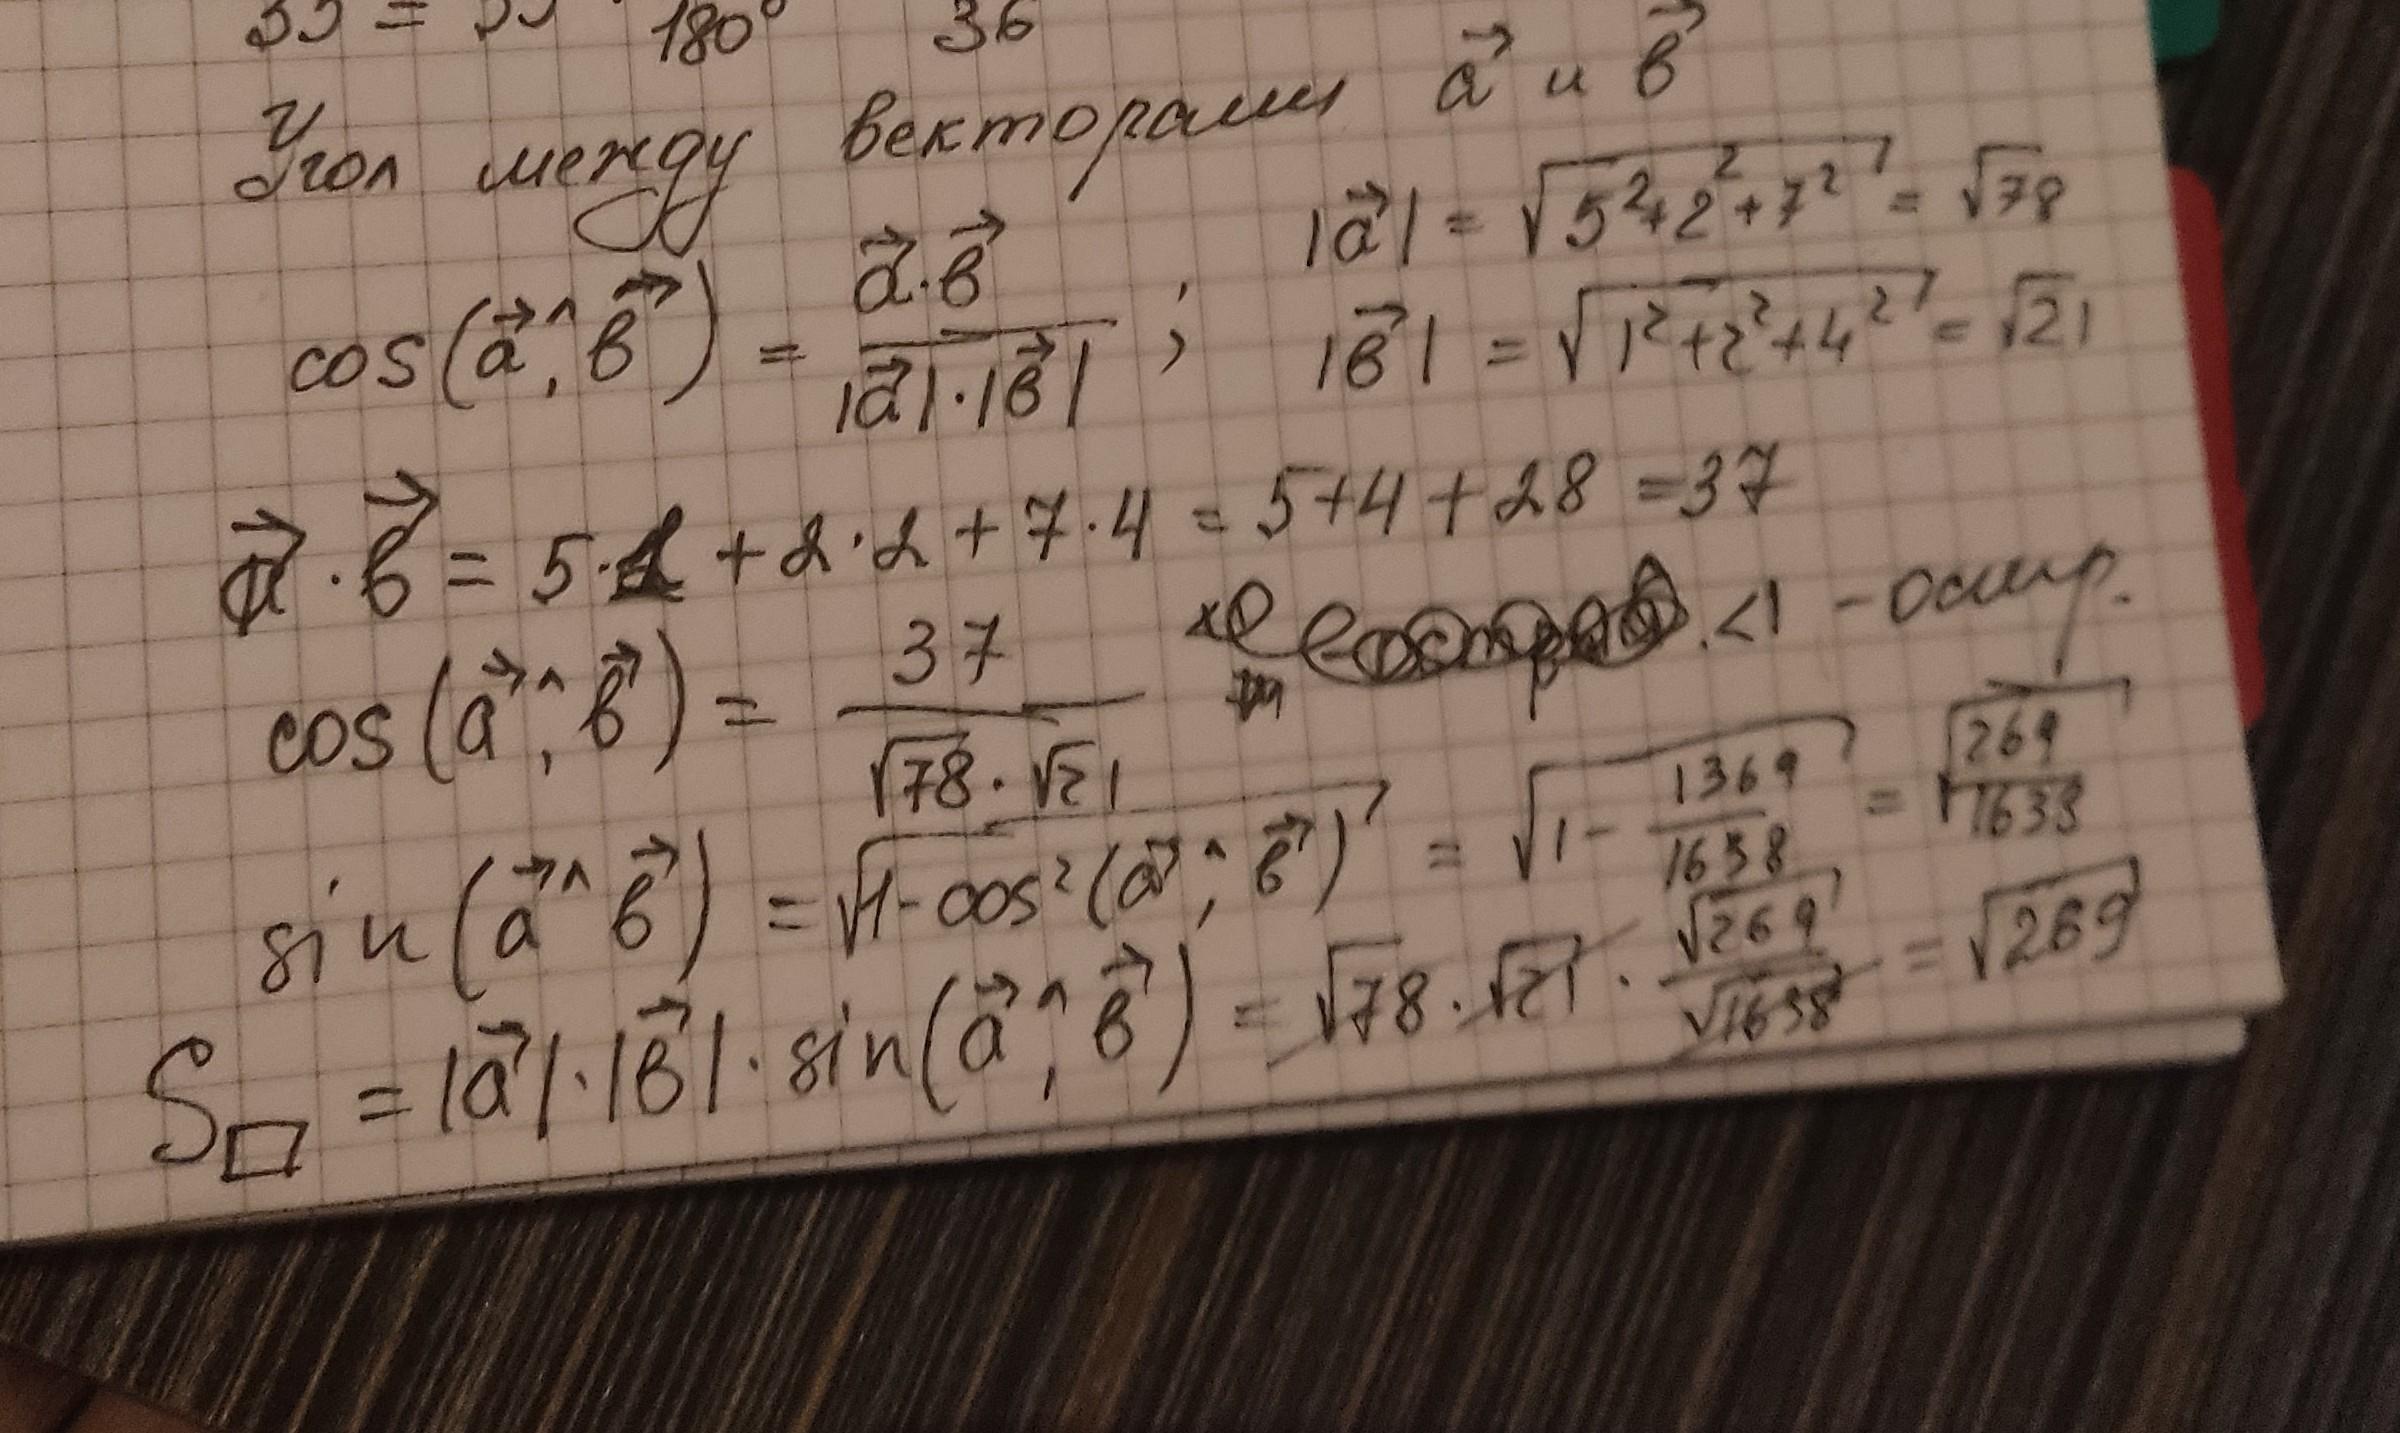 35 = 35 · 180° 36
Угол между векторами a⃗ и b⃗
cos(a⃗^, b⃗) = a⃗·b⃗ / |a⃗|·|b⃗| ; |a⃗| = √(5²+2²+7²) = √78
|b⃗| = √(1²+2²+4²) = √21
a⃗·b⃗ = 5·1 + 2·2 + 7·4 = 5+4+28 = 37
cos(a⃗^, b⃗) = 37 / √78·√21 <1 - остр.
sin(a⃗^ b⃗) = √(1-cos²(a⃗^, b⃗)) = √(1 - 1369/1638) = √269/1638
S▱ = |a⃗|·|b⃗|·sin(a⃗^, b⃗) = √78·√21·√269/√1638 = √269